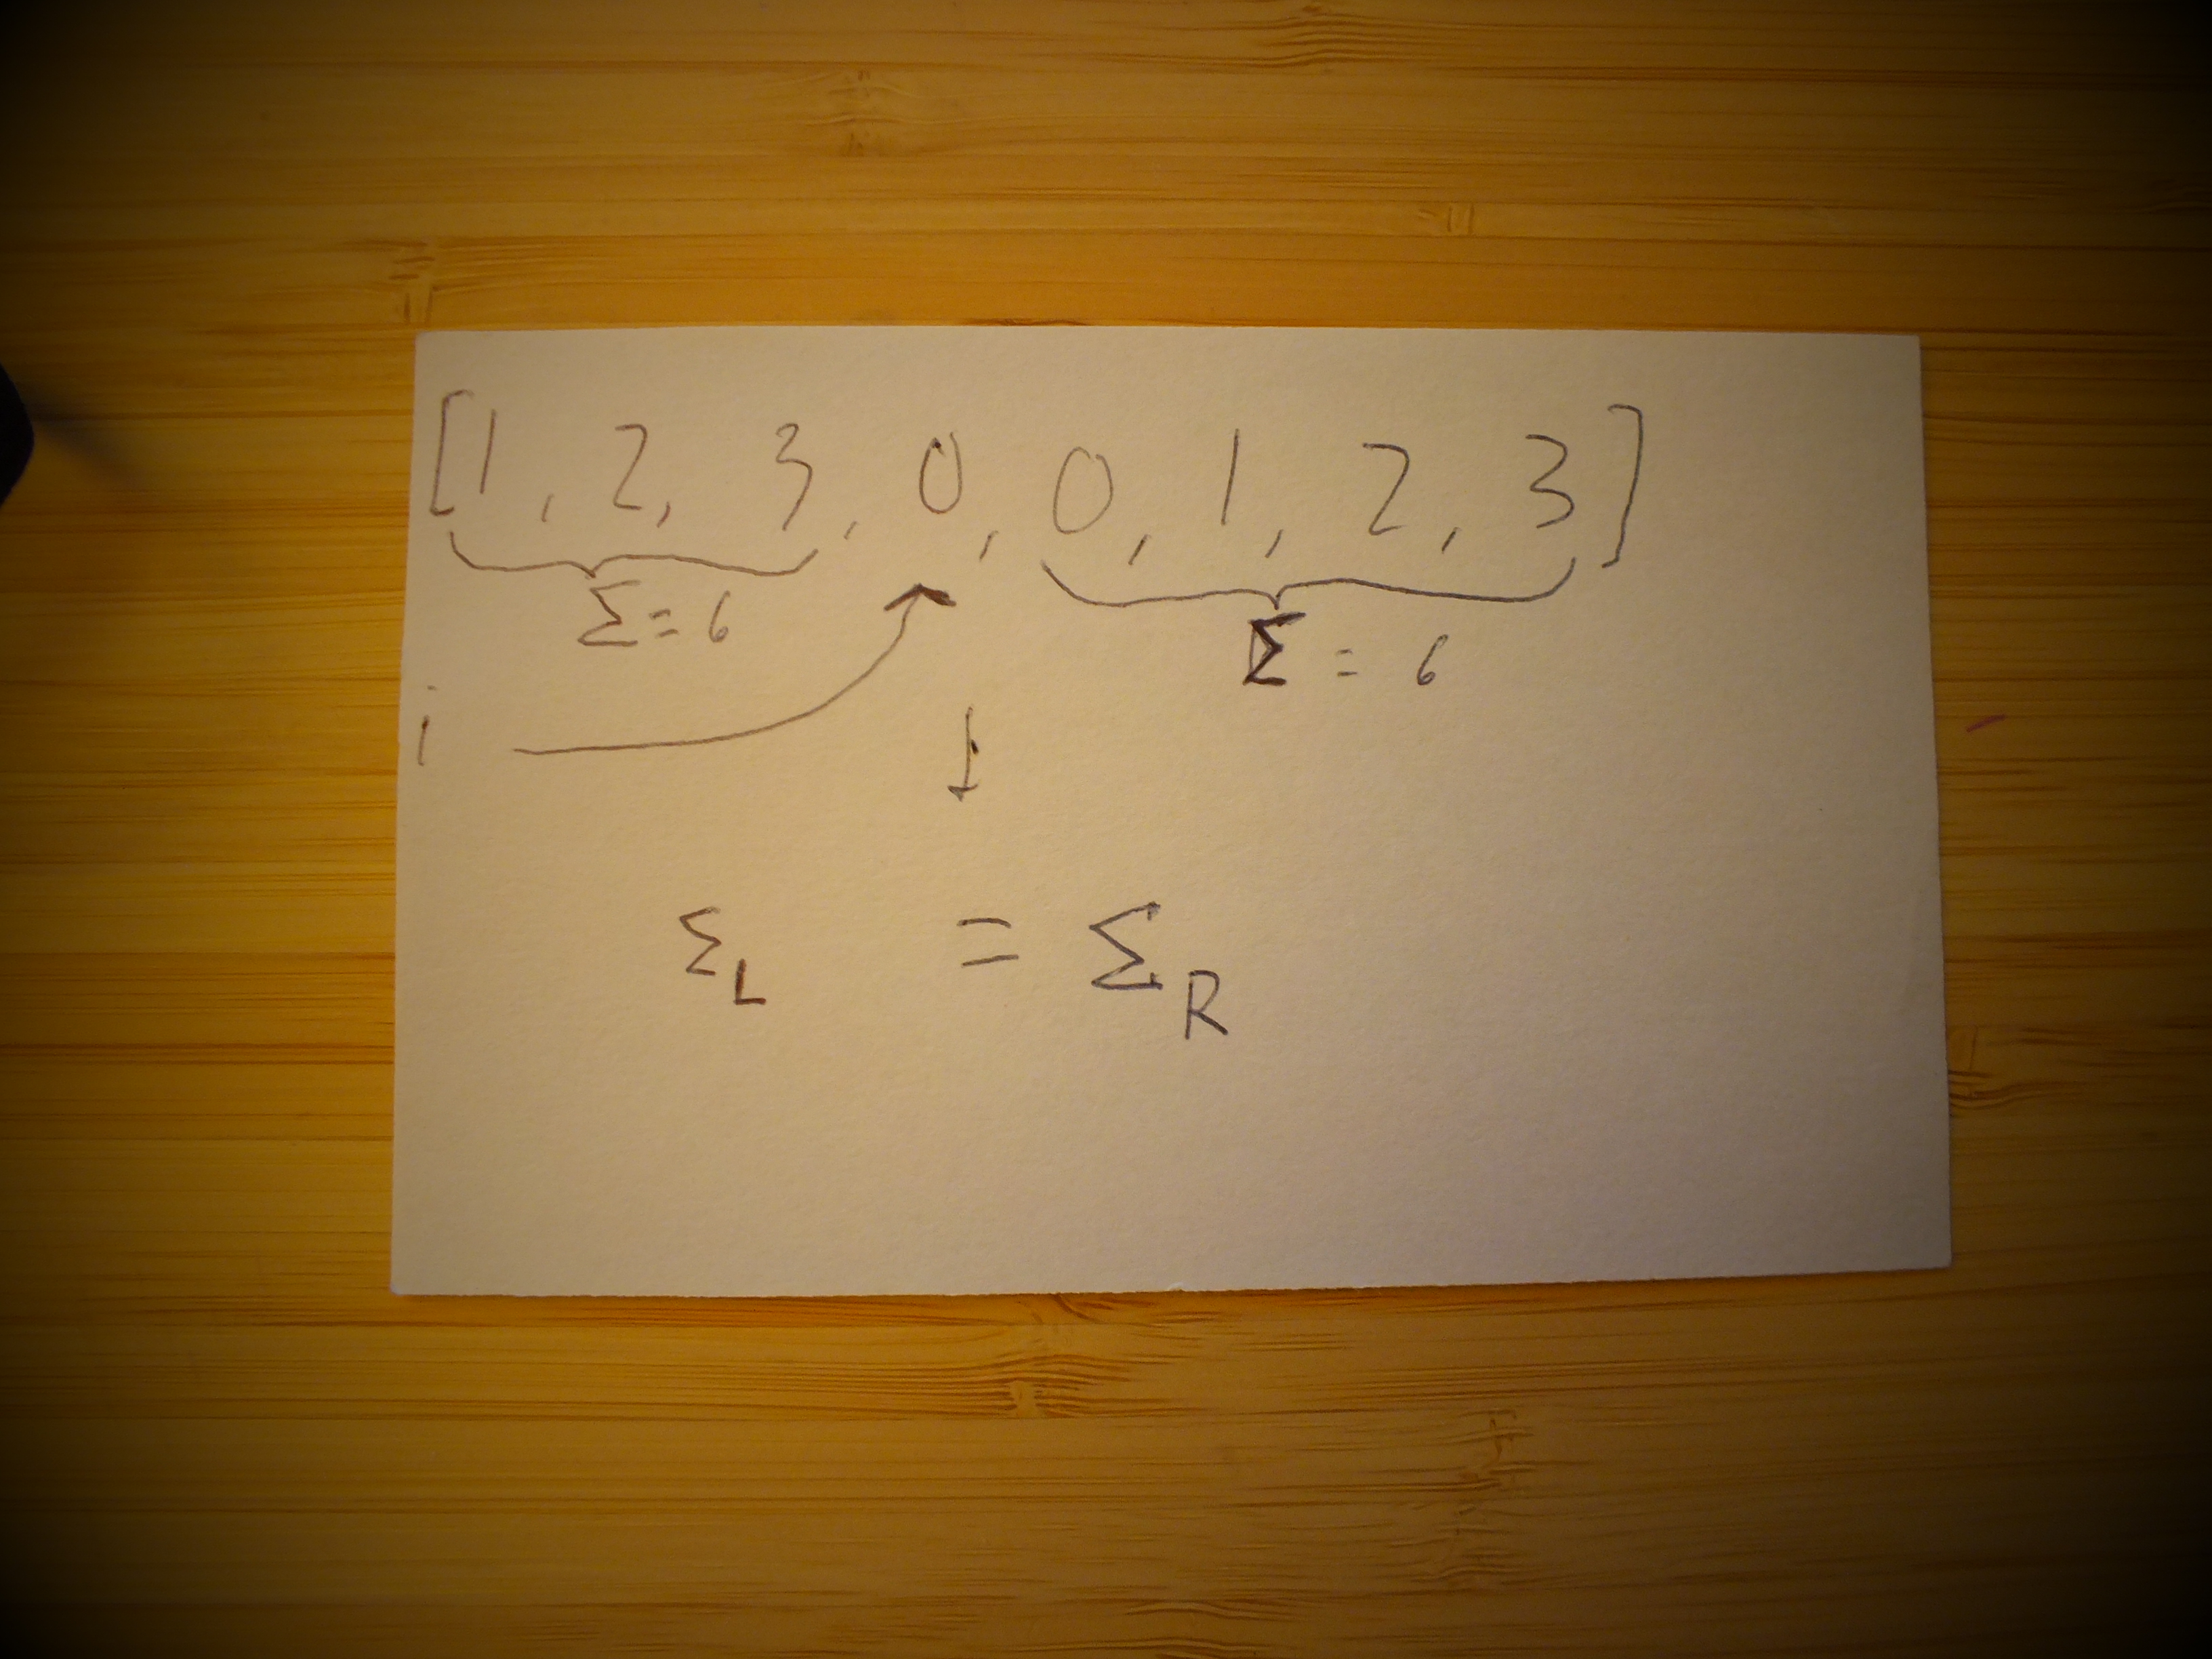 [1, 2, 3, 0, 0, 1, 2, 3]
Σ = 6
Σ = 6
i
↓
Σ_L = Σ_R